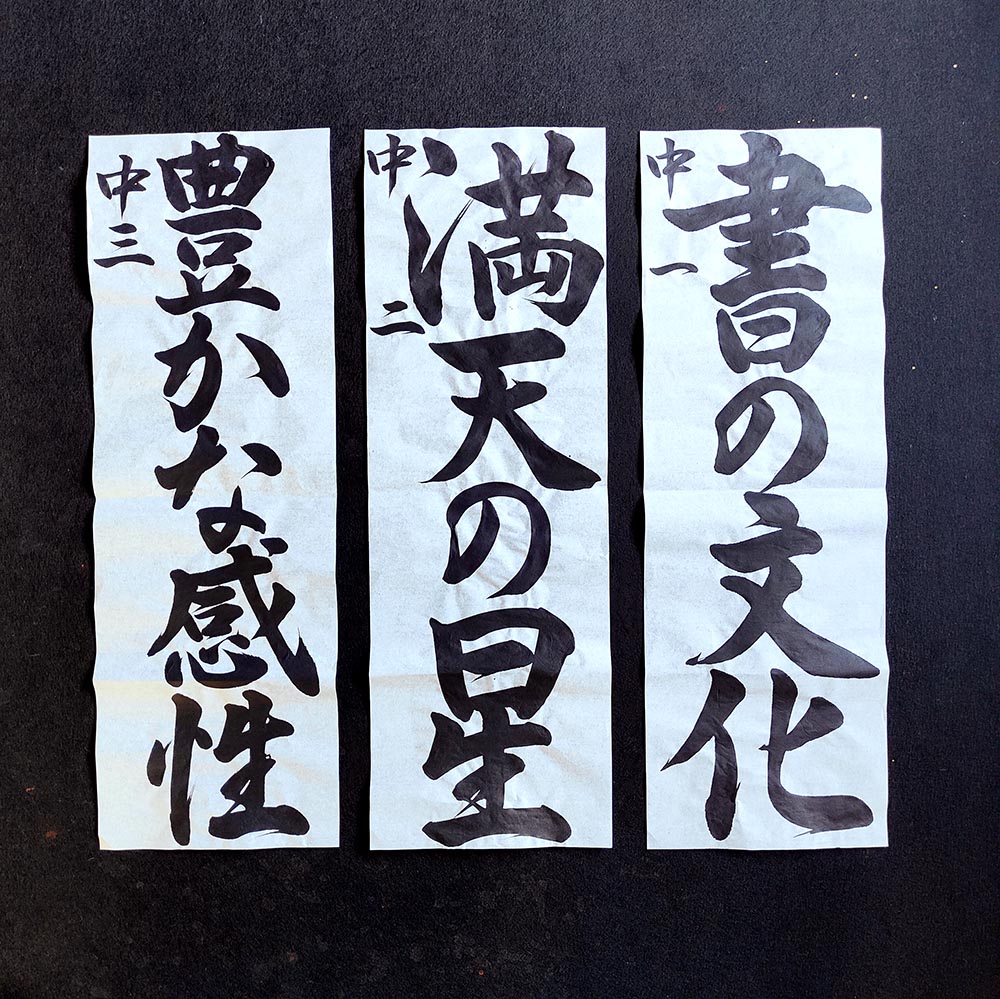 書の文化
中一
満天の星
中二
豊かな感性
中三